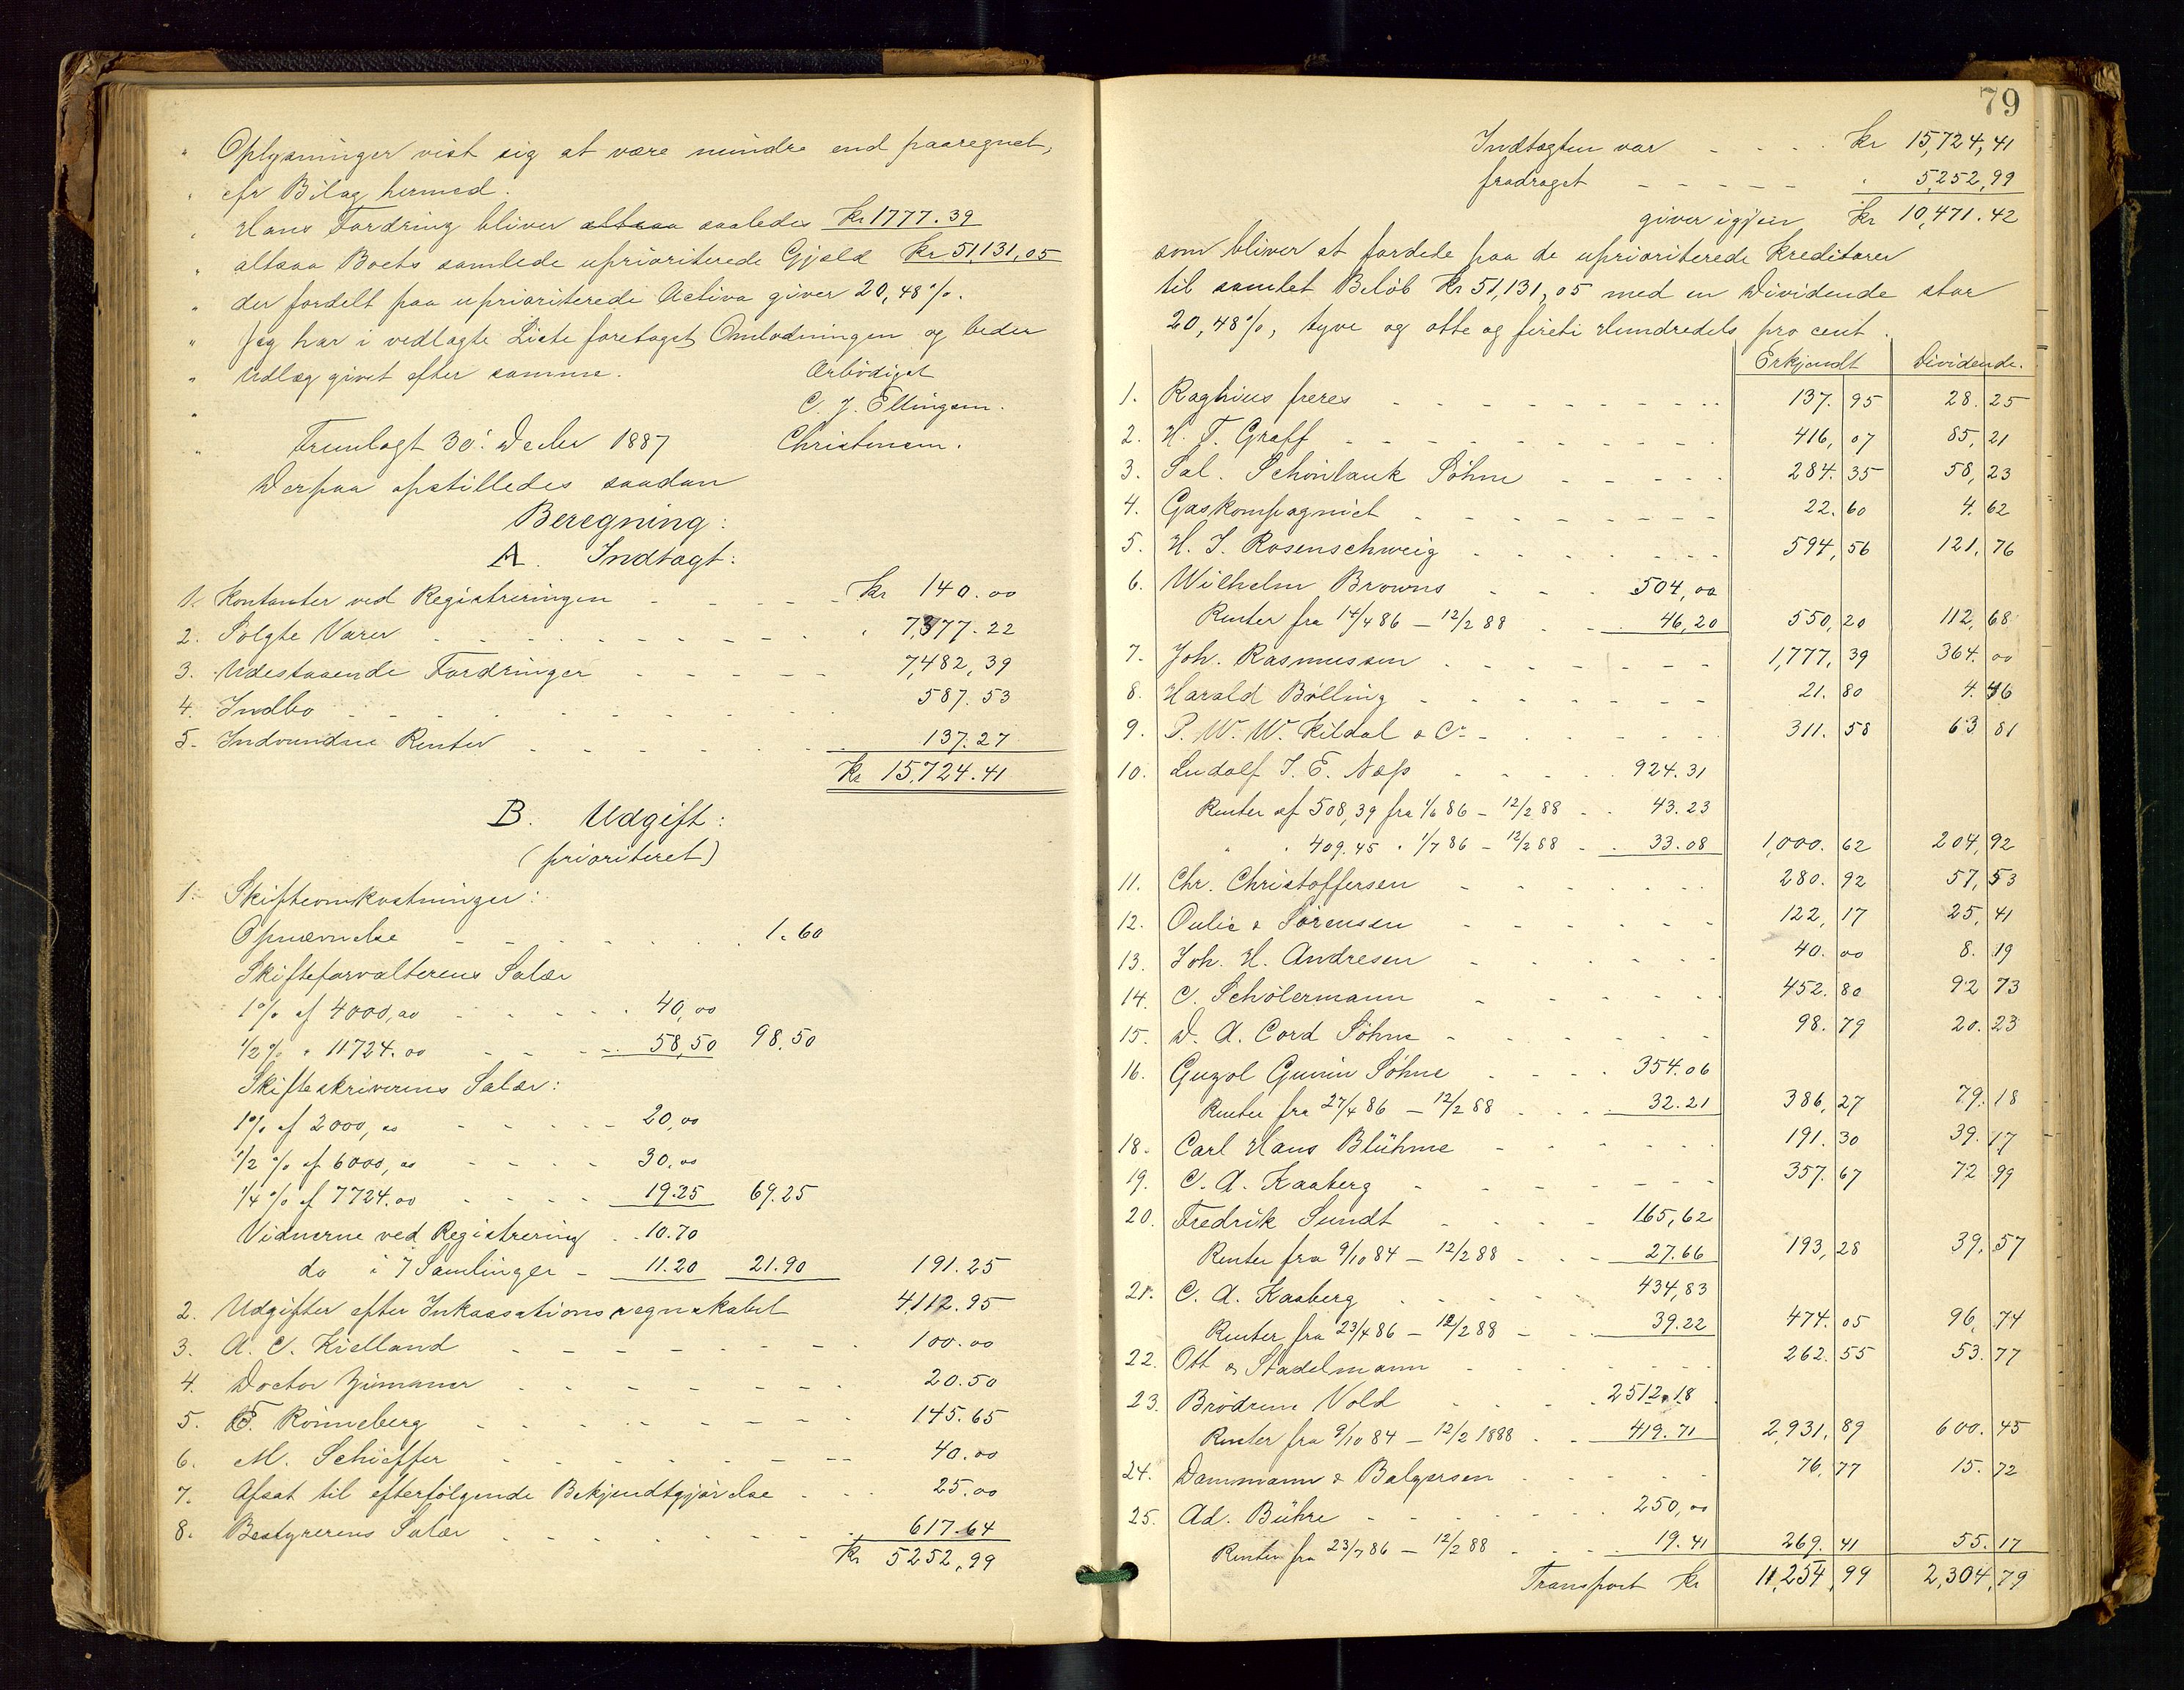 " Oplysninger vist sig at være mindre end paaregnet,
" cfr Bilag hermed.
" Hans Fordring bliver altsaa saaledes Kr 1777.39
" altsaa Boets samlede uprioriterede Gjæld Kr 51,131,05
" der fordelt paa uprioriterede Activa giver 20,48%.
" Jeg har i vedlagte Liste foretaget Omlodningen og beder
" Udlæg givet efter samme. Ærbødigst
" C. J. Ellingsen.
" Fremlagt 30' Decbr 1887 Christensen.
Derpaa opstilledes saadan
Beregning:
A. Indtægt:
1. Kontanter ved Registreringen - - - - Kr 140.00
2. Solgte Varer - - - - " 7,377.22
3. Udestaaende Fordringer - - - - 7,482,39
4. Indbo - - - - 587.53
5. Indvundne Renter - - - - 137.27
Kr 15,724.41
B. Udgift:
(prioriteret)
1. Skifteomkostninger:
Opnævnelse - - - - 1.60
Skifteforvalterens Salær
1% af 4000,00 - - - - 40,00
1/2% " 11724.00 - - - - 58,50 98.50
Skifteskriverens Salær:
1% af 2000,00 - - - - 20,00
1/2% af 6000,00 - - - - 30.00
1/4% af 7724.00 - - - - 19.25 69.25
Vidnerne ved Registrering - 10.70
do i 7 Samlinger - 11.20 21.90 191.25
2. Udgifter efter Inkassationsregnskabet 4,112.95
3. A. C. Kielland - - - - 100.00
4. Doctor - - - - 20.50
5. F. Rønneberg - - - - 145.65
6. M. Schieffer - - - - 40.00
7. Afsat til efterfølgende Bekjendtgjørelse - - - 25.00
8. Bestyrerens Salær - - - - 617.64
Kr 5252,99
79
Indtægten var - - - - Kr 15,724,41
fradraget - - - - " 5,252,99
giver igjen Kr 10,471.42
som bliver at fordele paa de uprioriterede Kreditorer
til samlet Beløb Kr 51,131,05 med en Dividende stor
20,48%, tyve og otte og firti Hundredels pro cent.
Erkjendt Dividende.
1. Raghius freres - - - - 137.95 28.25
2. H. T. Graff - - - - 416,07 85,21
3. Sal. Schönlank Söhne - - - - 284.35 58,23
4. Gaskompagniet - - - - 22.60 4.62
5. H. J. Rosenschweig - - - - 594,56 121.76
6. Wilhelm Browns - - - 504,00
Renter fra 14/4 86 - 12/2 88 - - 46,20 550,20 112,68
7. Joh. Rasmussen - - - - 1,777,39 364.00
8. Harald Bølling - - - - 21.80 4.46
9. P. W. W. Kildal & Co - - - - 311.58 63 81
10. Ludolf J. E. Næss - - - - 924.31
Renter af 508,39 fra 1/6 86 - 12/2 88 - - 43.23
" " 409.45 " 1/7 86 - 12/2 88 - - 33.08 1,000.62 204,92
11. Chr. Christoffersen - - - - 280.92 57,53
12. Oulie & Sørensen - - - - 122,17 25,41
13. Joh. H. Andresen - - - - 40.00 8.19
14. C. Schölermann - - - - 452.80 92 73
15. D. A. Cord Söhne - - - - 98.79 20.23
16. Guzol Söhne - - - - 354.06
Renter fra 27/4 86 - 12/2 88 - - - 32.21 386,27 79.18
18. Carl Hans Blühme - - - - 191.30 39.17
19. C. A. Kaaberg - - - - 357.67 72 99
20. Fredrik Sundt - - - - 165,62
Renter fra 9/10 84 - 12/2 88 - - - 27.66 193,28 39.57
21. C. A. Kaaberg - - - - 434,83
Renter fra 23/4 86 - 12/2 88 - - - 39.22 474.05 96,74
22. Ott & Stadelmann - - - - 262.55 53.77
23. Brødrene Vold - - - - 2512.18
Renter fra 9/10 84 - 12/2 1888 - - - 419.71 2,931,89 600.45
24. Dammann & Balgersen - - - - 76,77 15.72
25. Ad. Bühre - - - - 250,00
Renter fra 23/7 86 - 12/2 88 - - - 19.41 269.41 55.17
Transport Kr 11,254,99 2,304,79